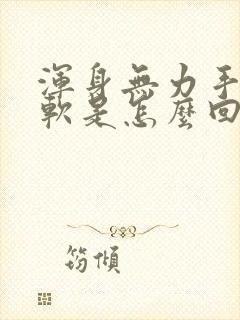 渾身無力手
軟是怎麼回
筠傾